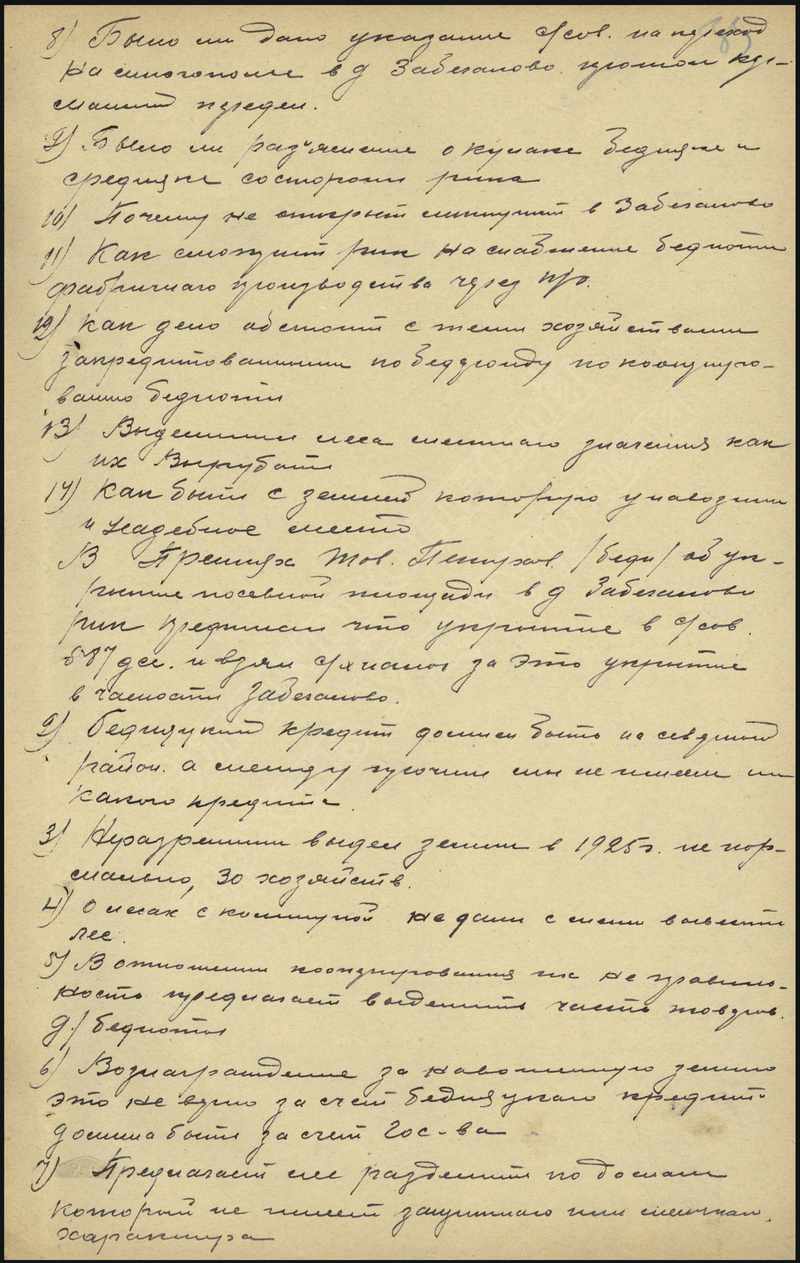 8) Было ли дано указание с/сов. на переход
на многополье в д Забегалово
передел.
9) Было ли раз'яснение о кулаке бедняке и
средняке состороны рика
10) Почему не открыт ликпункт в Забегалово
11) Как смотрит рик на снабжение бедноты
фабричного производства через п/о.
12) как дело обстоит с теми хозяйствами
закредитованными по бедфонду по коопериро-
ванию бедноты
13) Выделили леса местного значения как
их Вырубать
14) Как быть с землей которую унавозили
и усадебное место
В Прениях тов. /бедн/ об ук-
рытие посевной площади в д Забегалово
рик что укрытие в с/сов.
587 дес. и взял с/х налог за это укрытие
в частости Забегалово.
2) Бедняцкий кредит должен быть на
район. а между прочим мы не имеем ни
какого кредита
3) Неразрешили выдел земли в 1925 г. не нор-
мально, 30 хозяйств.
4) О лесах с коммуной не дали с ними
лес.
5) В отношении кооперирования то же не правиль-
ность предлагает выделить часть
д/ бедноты
6) Вознаграждение за навоженную землю
это не верно за счет бедняцкого кредит
должна быть за счет Гос-ва
7) Предлагает лес разделить по домам
который не имеет защитного или
характера